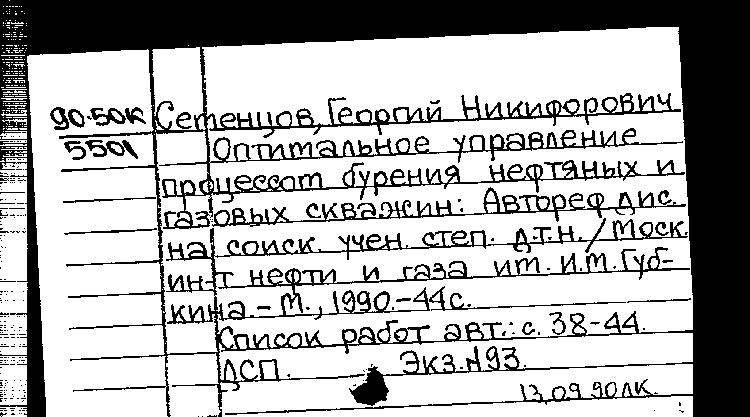 90-50К Сетенцов, Георгий Никифорович
5501 Оптимальное управление
процессом бурения нефтяных и
газовых скважин: Автореф дис.
на соиск. учен. степ. д.т.н. / Моск.
ин-т нефти и газа им. И.М. Губ-
кина. - М., 1990. - 44 с.
Список работ авт.: с. 38-44.
ДСП. Экз. №93.
13.09.90 ЛК.